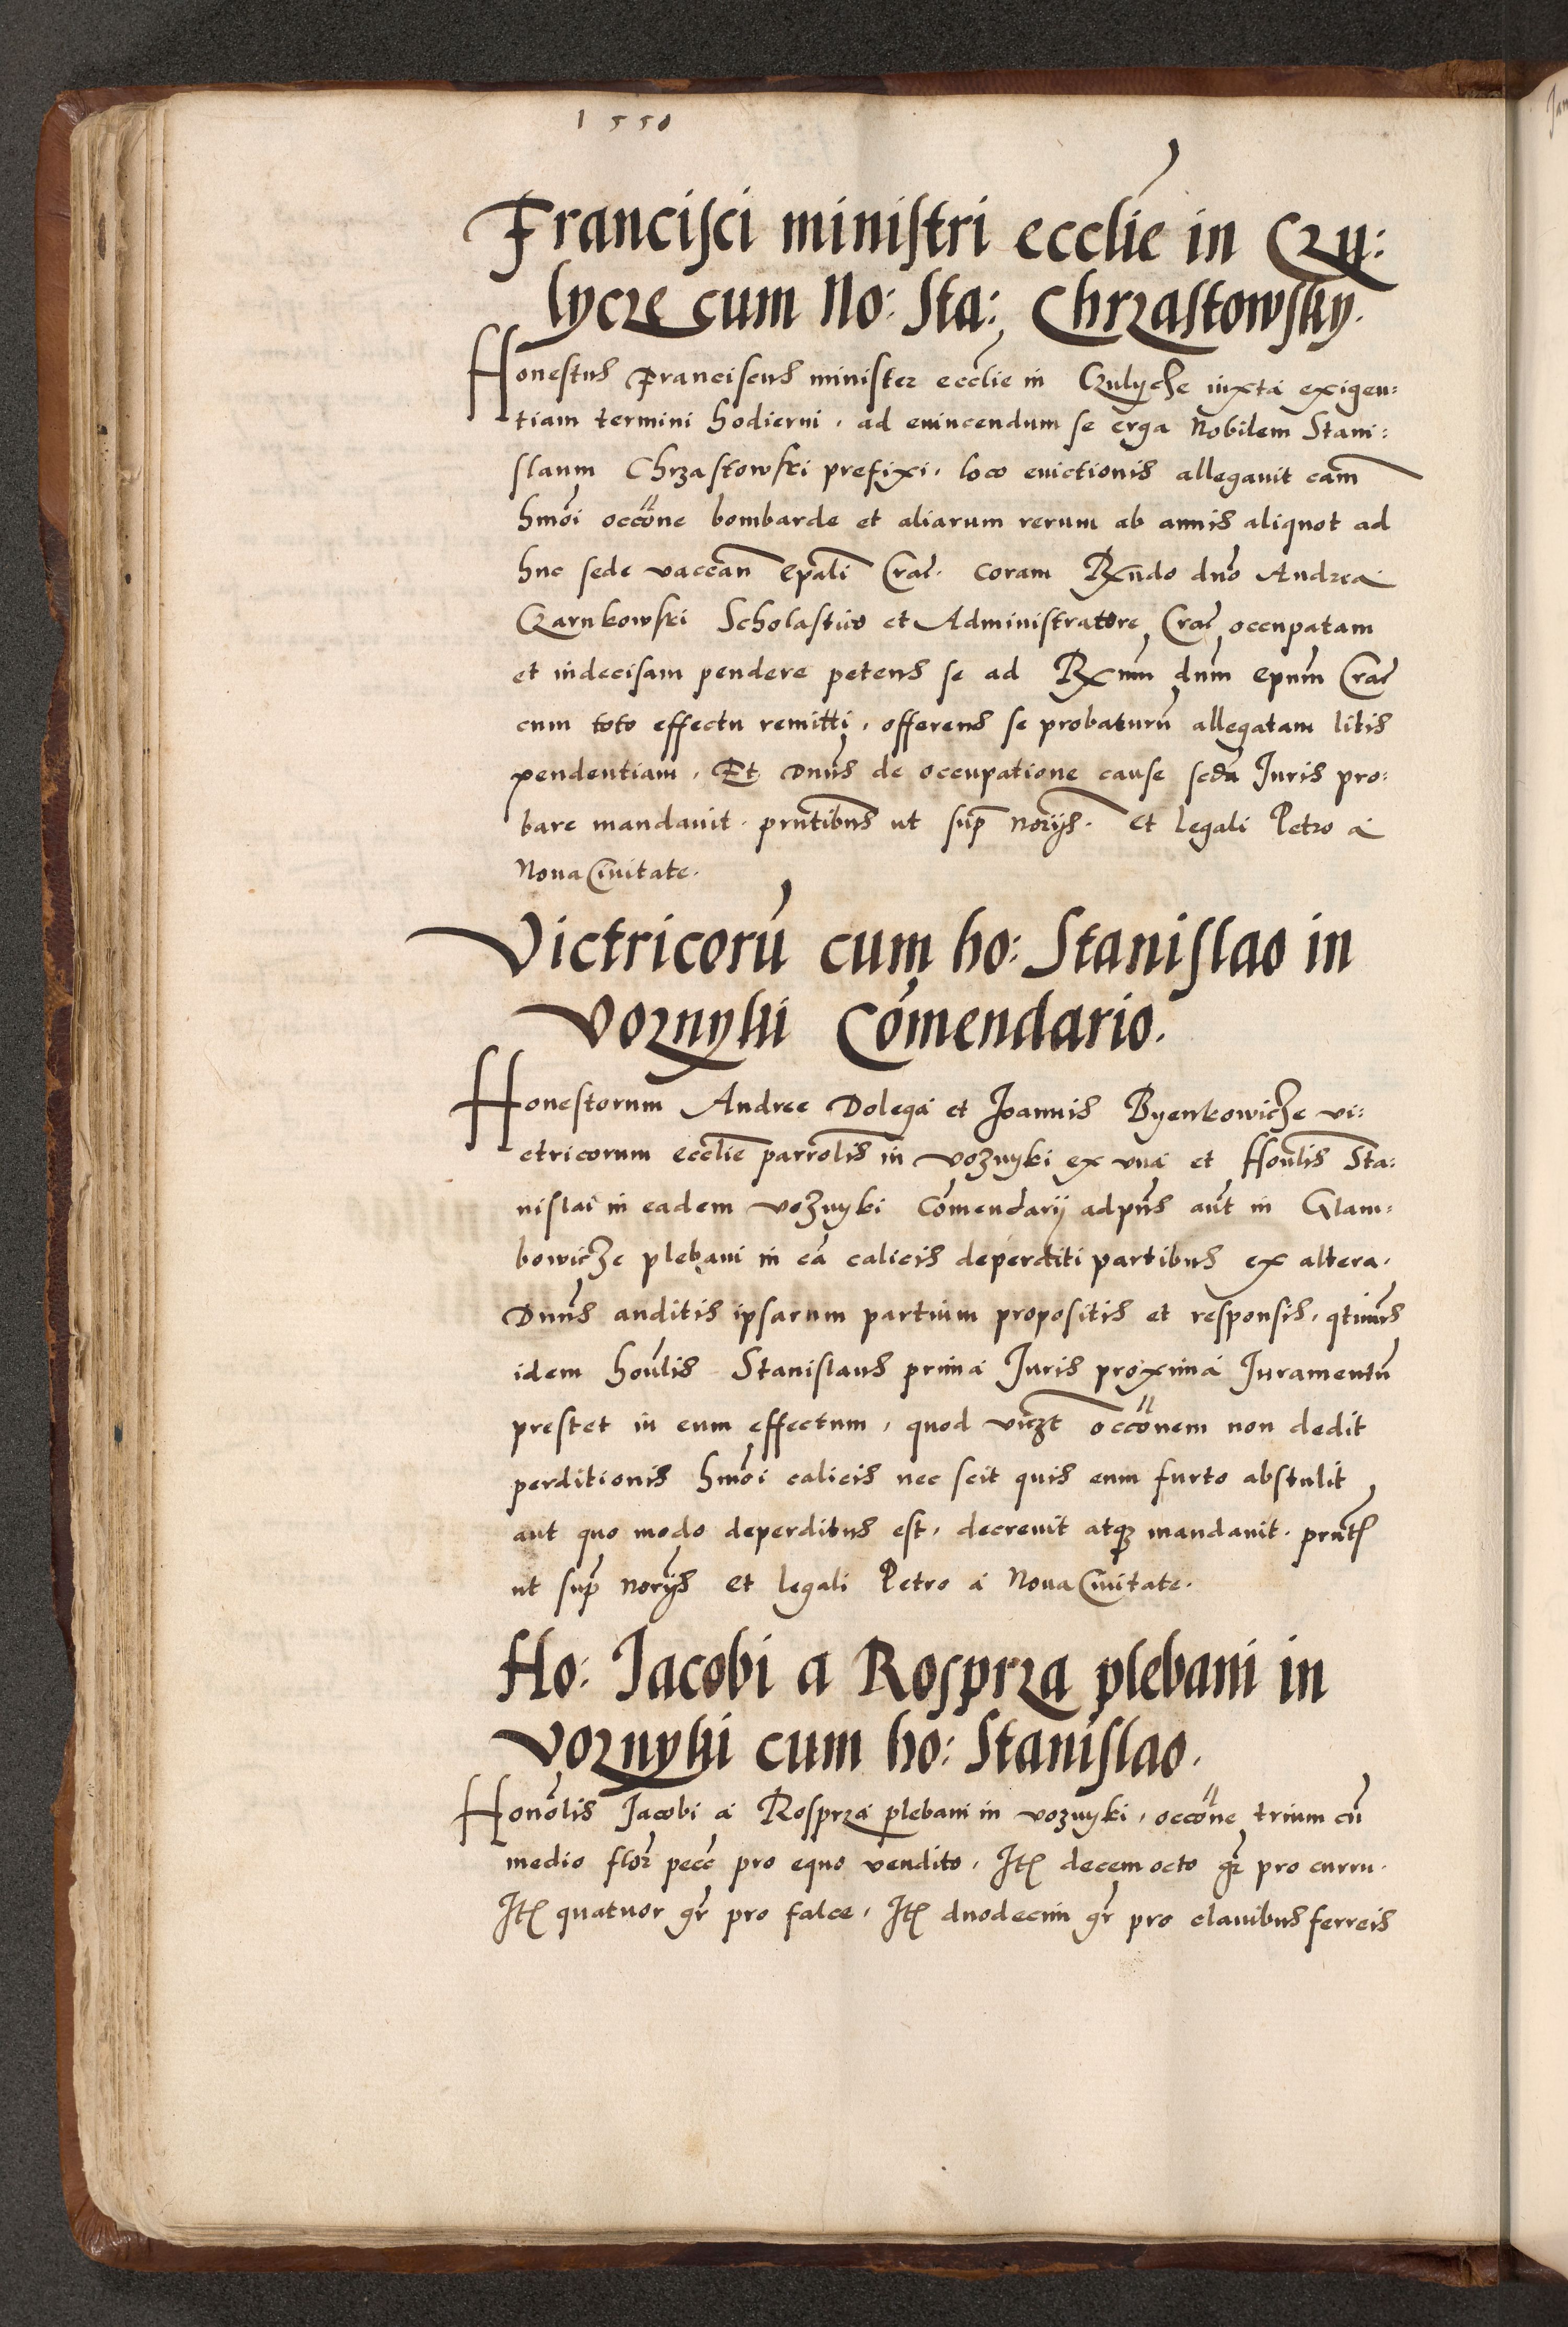 1550
Francisci ministri ecclie in Czu:
lycze cum No: Sta: Chrzastowsky.
Honestus Franciscus minister ecclie in Czulyche iuxta exigen:
tiam termini hodierni, ad euincendum se erga Nobilem Stani:
slaum Chrzastowski prefixi, loco euictionis allegauit cam
hmoi occone bombarde et aliarum rerum ab annis aliquot ad
huc sede vacean Epali Crac. coram Rndo dno Andrea
Czarnkowski Scholastico et Administratore Crac occupatam
et indecisam pendere petens se ad Rxmu dnm Epum Crac
cum toto effectu remitti, offerens se probaturu allegatam litis
pendentiam, Et Dnus de occupatione cause scdu Iuris pro:
bare mandauit. prntibus ut sup norijs. et legali Petro a
Noua Ciuitate.
Victricoru cum ho: Stanislao in
Voznyki Comendario.
Honestorum Andree Dolega et Joannis Byenkowicze vi:
ctricorum ecclie parrolis in Voznyki ex vna et Honlis Sta:
nislai in eadem Voznyki Comendarij adpns aut in Glam:
bowicze plebani in ca calicis deperditi partibus ex altera.
Dnus auditis ipsarum partium propositis et responsis, qtinus
idem honlis Stanislaus prima Iuris proxima Iuramentu
prestet in eum effectum, quod viczt occonem non dedit
perditionis hmoi calicis nec scit quis eum furto abstulit
aut quo modo deperditus est, decreuit atqz mandauit. prnt
ut sup norijs et legali Petro a Noua Ciuitate.
Ho: Jacobi a Rosprza plebani in
Voznyki cum ho: Stanislao.
Honolis Jacobi a Rosprza plebani in Voznyki, occone trium cu
medio flor pecc pro equo vendito, Itm decem octo gr pro curru.
Itm quatuor gr pro falce, Itm duodecim gr pro clauibus ferreis